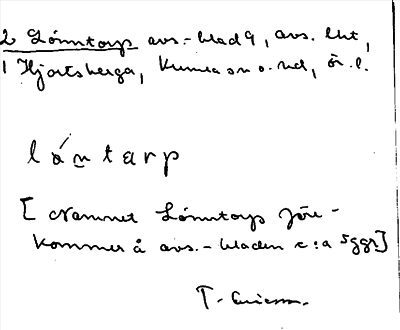 2 Lönntorp avs.-blad 9, avs. lht,
1 Hjortsberga, Kumla sn o. hd, Ör. l.
lǻntarp
[Namnet Lönntorps före-
kommer å avs.-bladen c:a 5 ggr]
T. Ericson.